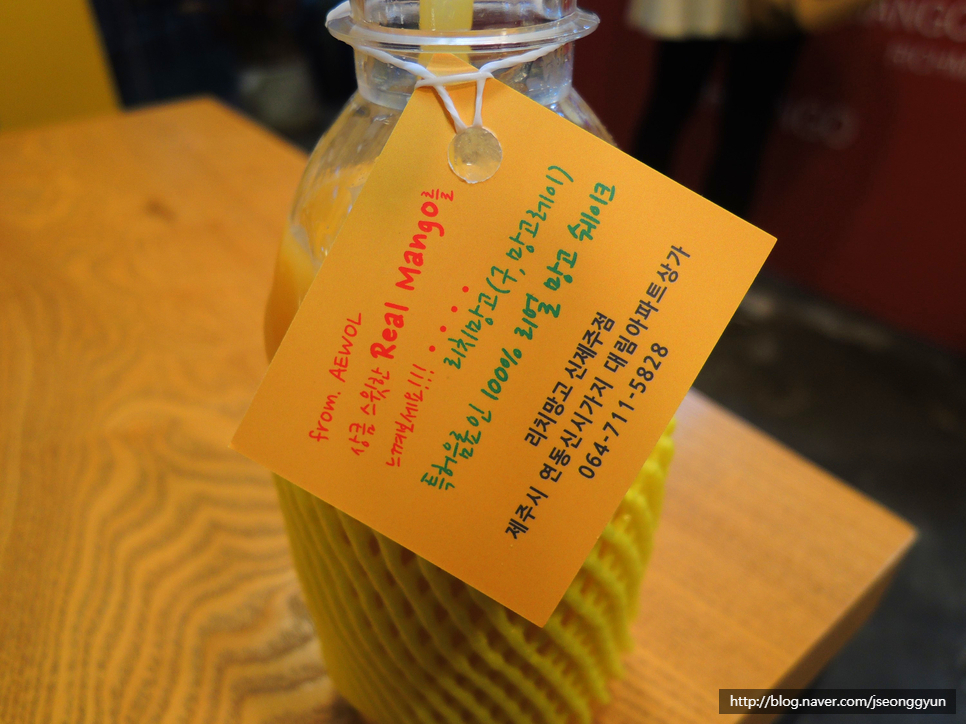 from. AEWOL
상큼 스윗한 Real Mango를
느껴보세요!!!
리치망고(구, 망고레이)
특허울 인 100% 리얼 망고 쉐이크
리치망고 신제주점
제주시 연동신시가지 대림아파트상가
064-711-5828
ANGO
GO
http://blog.naver.com/jseonggyun